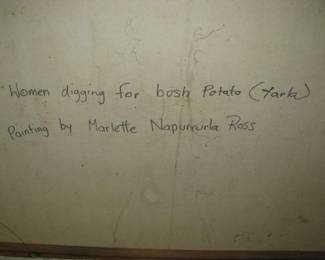 Women digging for bosh Potato (Yarla)
Painting by Marlette Napurrurla Ross